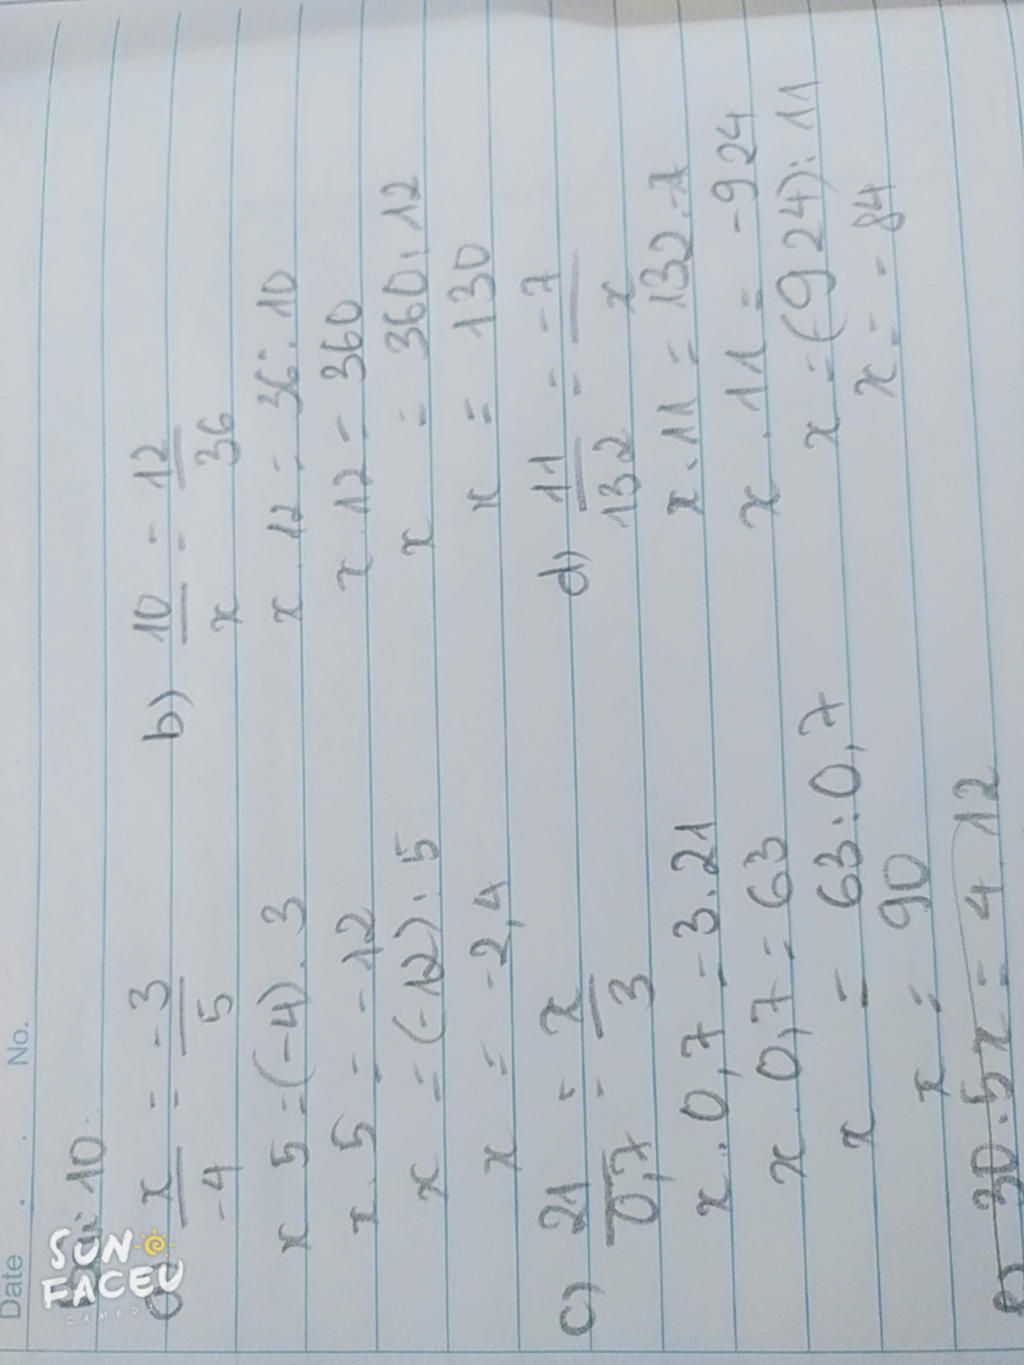 Date . . No.
Bài 10.
a) x/-4 = -3/5
x 5 = (-4) . 3
x . 5 = -12
x = (-12) : 5
x = -2,4
b) 10/x = 12/36
x . 12 = 36 . 10
x . 12 = 360
x = 360 : 12
x = 130
c) 21/0,7 = x/3
x . 0,7 = 3.21
x . 0,7 = 63
x = 63 : 0,7
x = 90
d) 11/132 = -7/x
x . 11 = 132 . -7
x . 11 = -924
x = (924) : 11
x = -84
30 . 5x = 4 . 12
SUN
FACEU
CAMERA